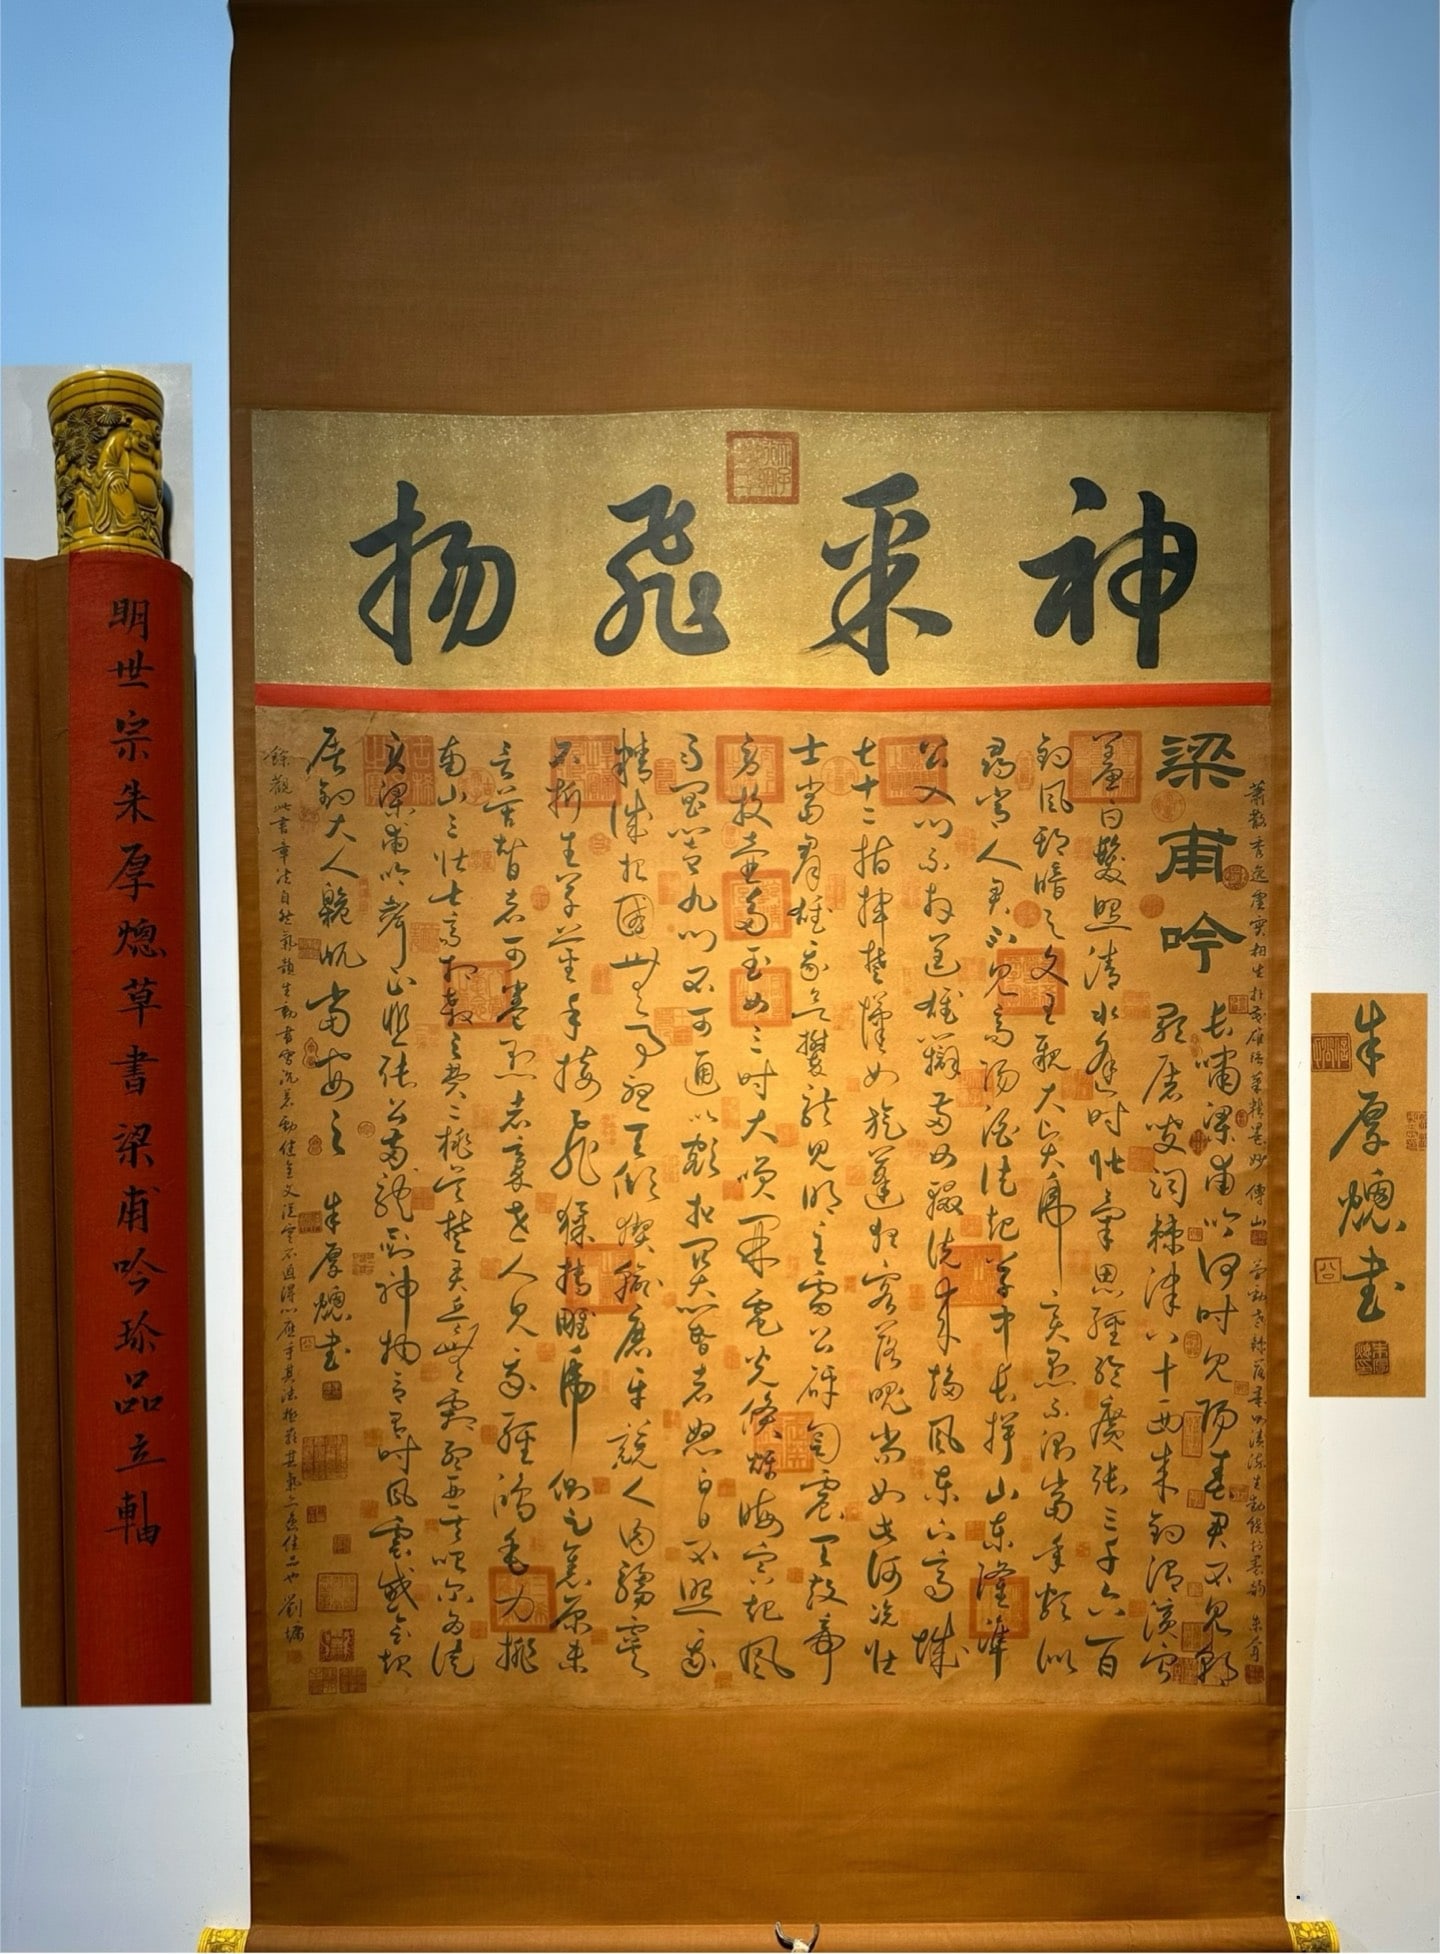 神采飛揚
蕭散秀逸虛實相生 傅山
梁甫吟
長嘯梁甫吟何時見陽春君不見朝
歌屠叟辭棘津八十西來釣渭濱寧
羞白髮照清水逢時壯氣思經綸廣張三千六百
釣風期暗與文王親大賢虎變愚不測當年頗似
尋常人君不見高陽酒徒起草中長揖山東隆準
公入門不拜逞雄辯兩女輟洗來趨風東下齊城
七十二指揮楚漢如旋蓬狂客落魄尚如此何況壯
士當群雄我欲攀龍見明主雷公砰訇震天鼓帝
旁投壺多玉女三時大笑開電光倏爍晦冥起風
雨閶闔九門不可通以額扣關閽者怒白日不照我
精誠杞國無事憂天傾猰貐磨牙競人肉騶虞
不折生草莖手接飛猱搏雕虎側足焦原未
言苦智者可卷愚者豪世人見我輕鴻毛力排
南山三壯士齊相殺之費二桃吳楚弄兵無劇孟亞夫咍爾為徒
勞梁甫吟聲正悲張公兩龍劍神物合有時風雲感會起
屠釣大人峴屼當安之 朱厚熜書
餘觀此書章法自然氣韻生動 得心應手其法 佳品也 劉墉
朱厚熜書
明世宗朱厚熜草書梁甫吟珍品立軸